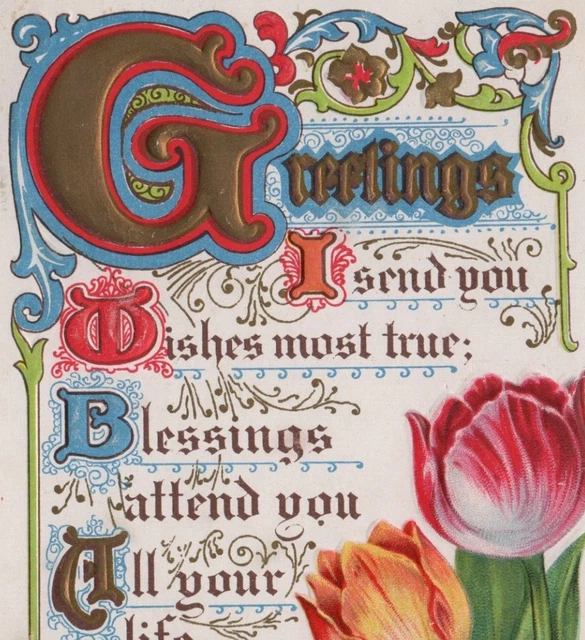 Greetings
I send you
Wishes most true;
Blessings
attend you
All your
life